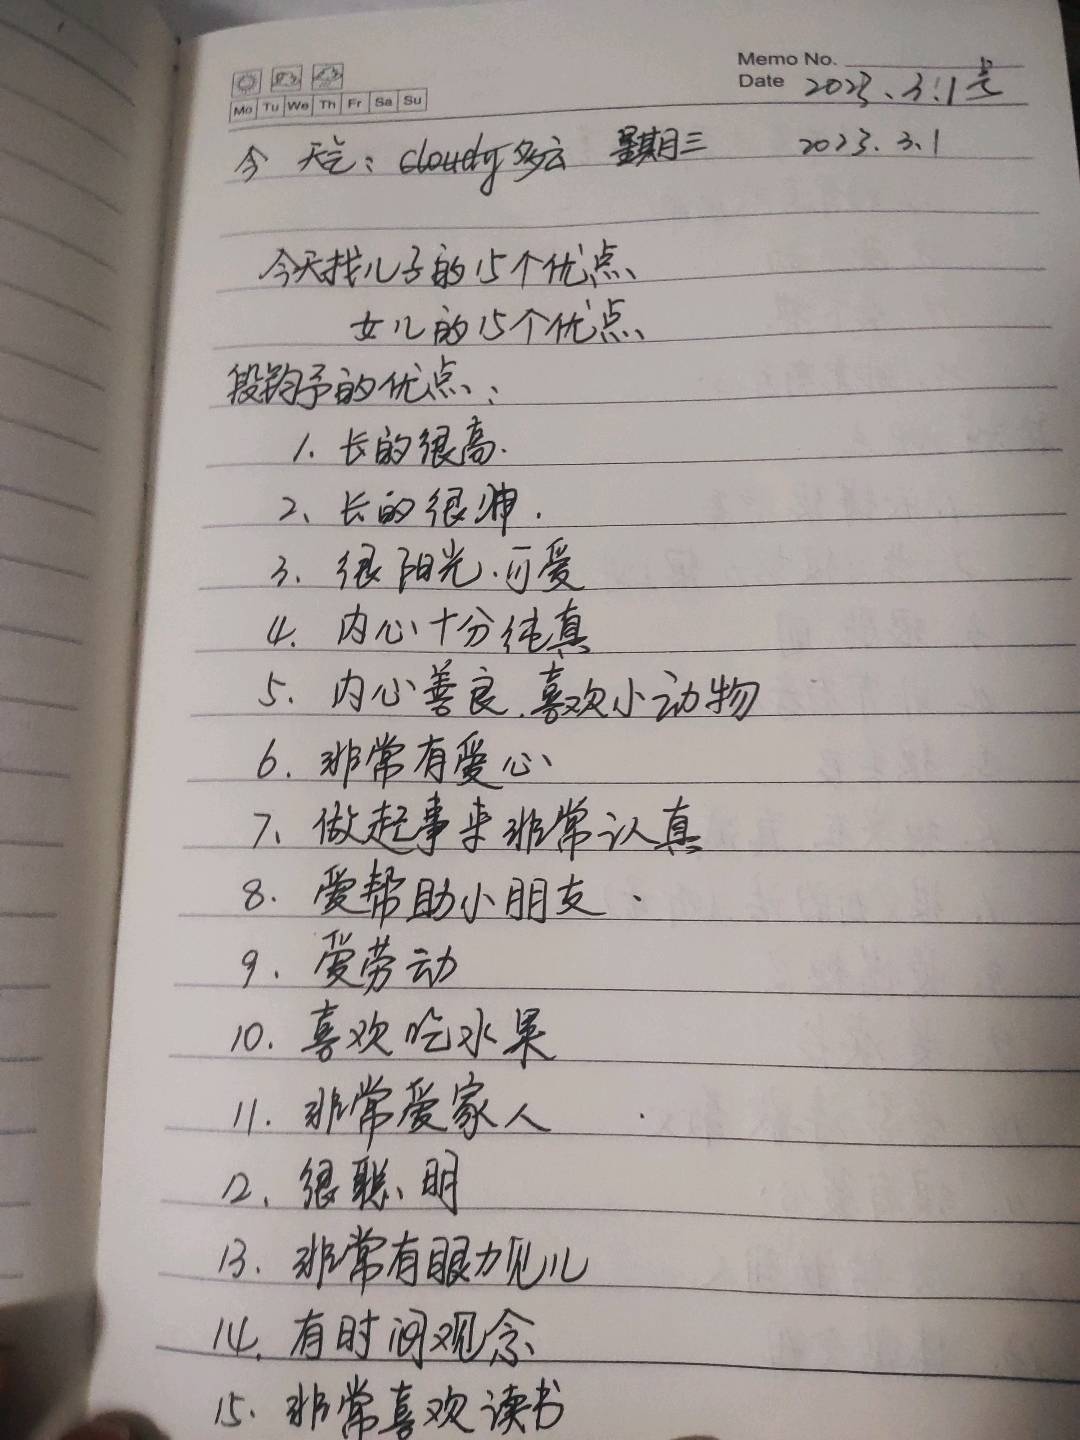 Memo No.
Date 2023.3.1号
Mo Tu We Th Fr Sa Su
今 天气：cloudy 多云 星期三 2023.3.1
今天找儿子的15个优点、
女儿的15个优点、
段钧予的优点、：
1. 长的很高.
2、长的很帅.
3. 很阳光.可爱
4. 内心十分纯真
5. 内心善良.喜欢小动物
6. 非常有爱心
7、做起事来非常认真
8. 爱帮助小朋友.
9. 爱劳动
10. 喜欢吃水果
11. 非常爱家人
12、很聪明
13. 非常有眼力见儿
14. 有时间观念
15. 非常喜欢读书